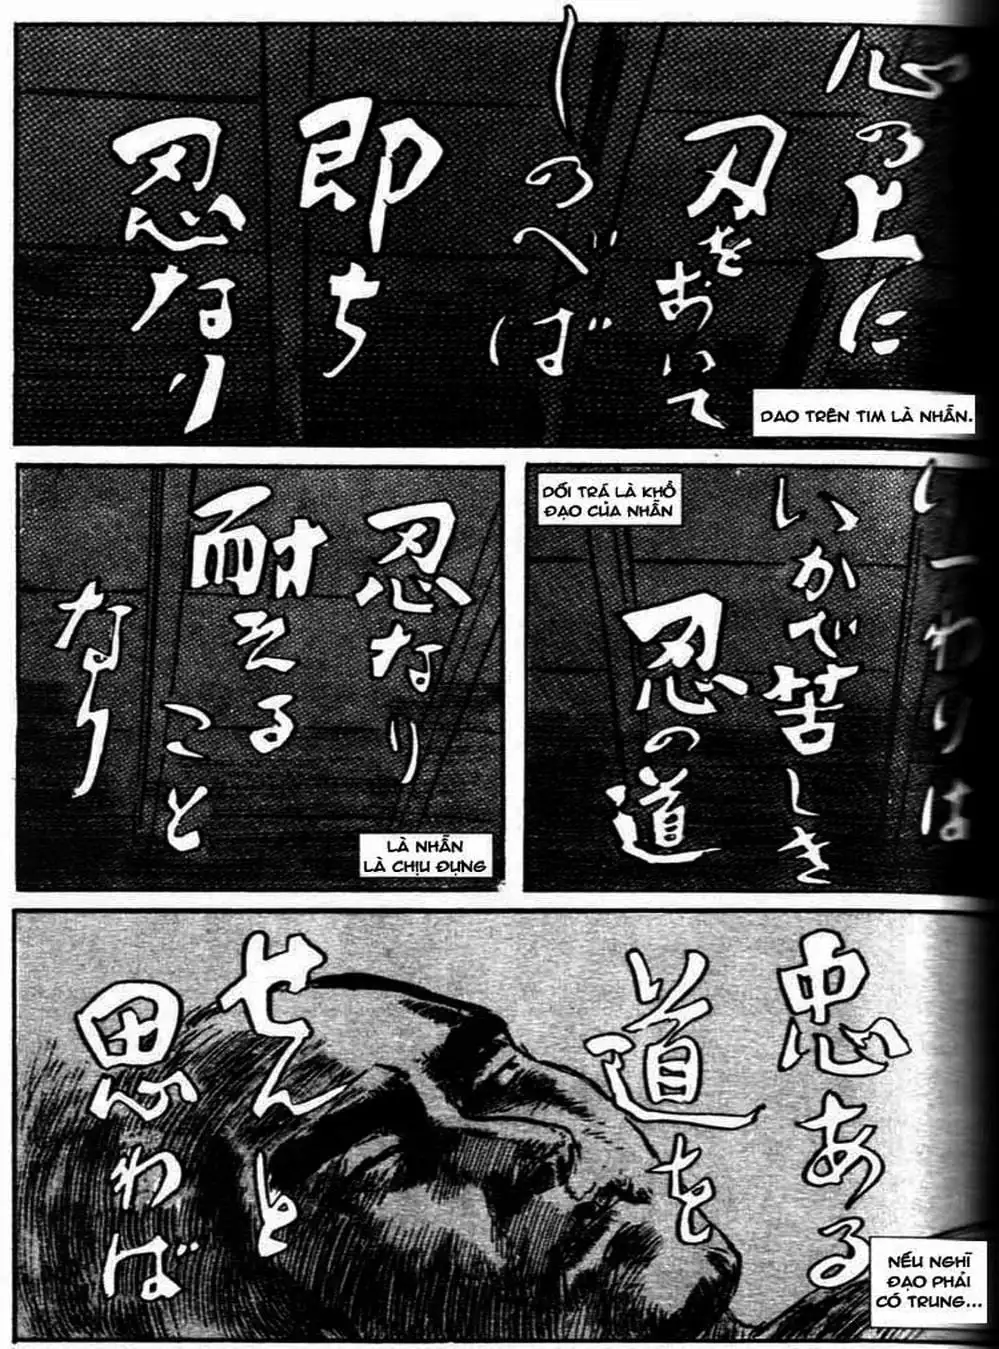 心の上に
刃をおいて
しのべば
即ち
忍なり
DAO TRÊN TIM LÀ NHẪN.
いつわりは
いかで苦しき
忍の道
DỐI TRÁ LÀ KHỔ
ĐẠO CỦA NHẪN
忍なり
耐える
こと
なり
LÀ NHẪN
LÀ CHỊU ĐỰNG
忠ある
道を
せんと
思わば
NẾU NGHĨ
ĐẠO PHẢI
CÓ TRUNG...